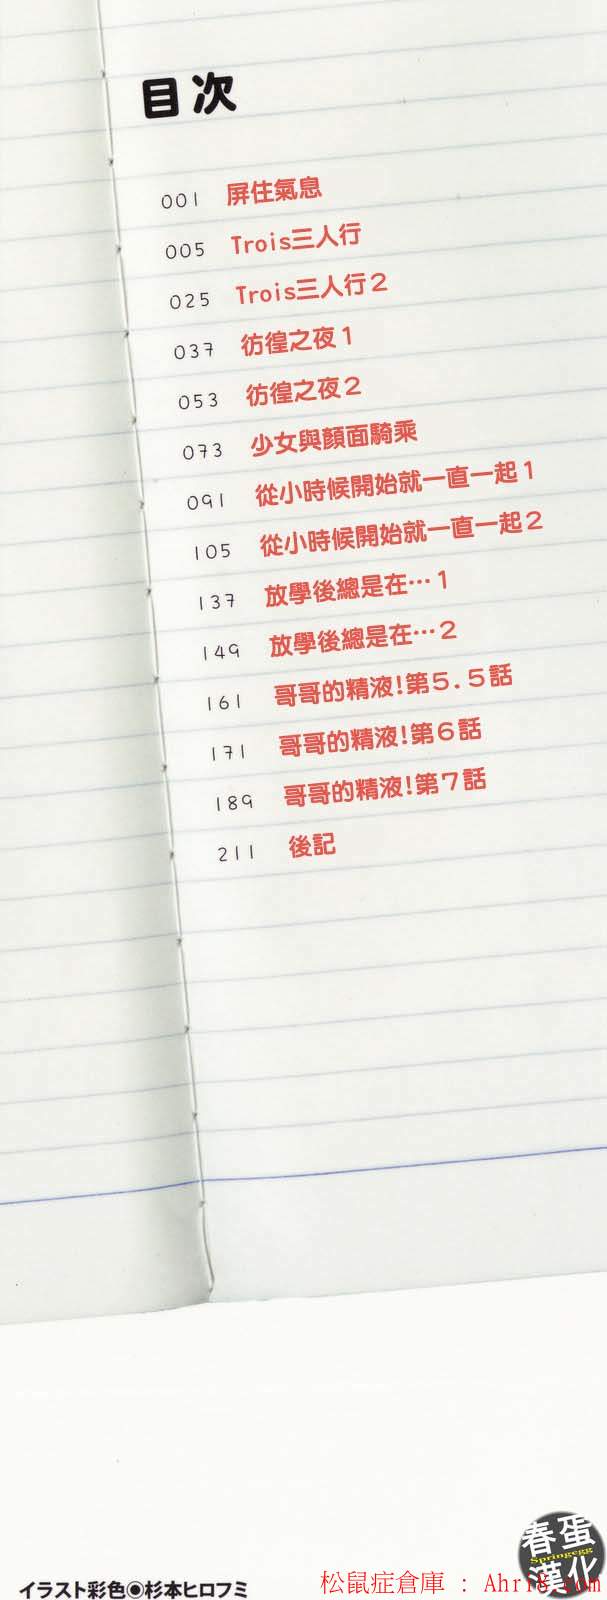 目次
001 屏住氣息
005 Trois三人行
025 Trois三人行２
037 彷徨之夜１
053 彷徨之夜２
073 少女與顏面騎乘
091 從小時候開始就一直一起１
105 從小時候開始就一直一起２
137 放學後總是在…１
149 放學後總是在…２
161 哥哥的精液!第５.５話
171 哥哥的精液!第６話
189 哥哥的精液!第７話
211 後記
春蛋
Springegg
漢化
イラスト彩色◉杉本ヒロフミ
松鼠症倉庫 : Ahri8.com